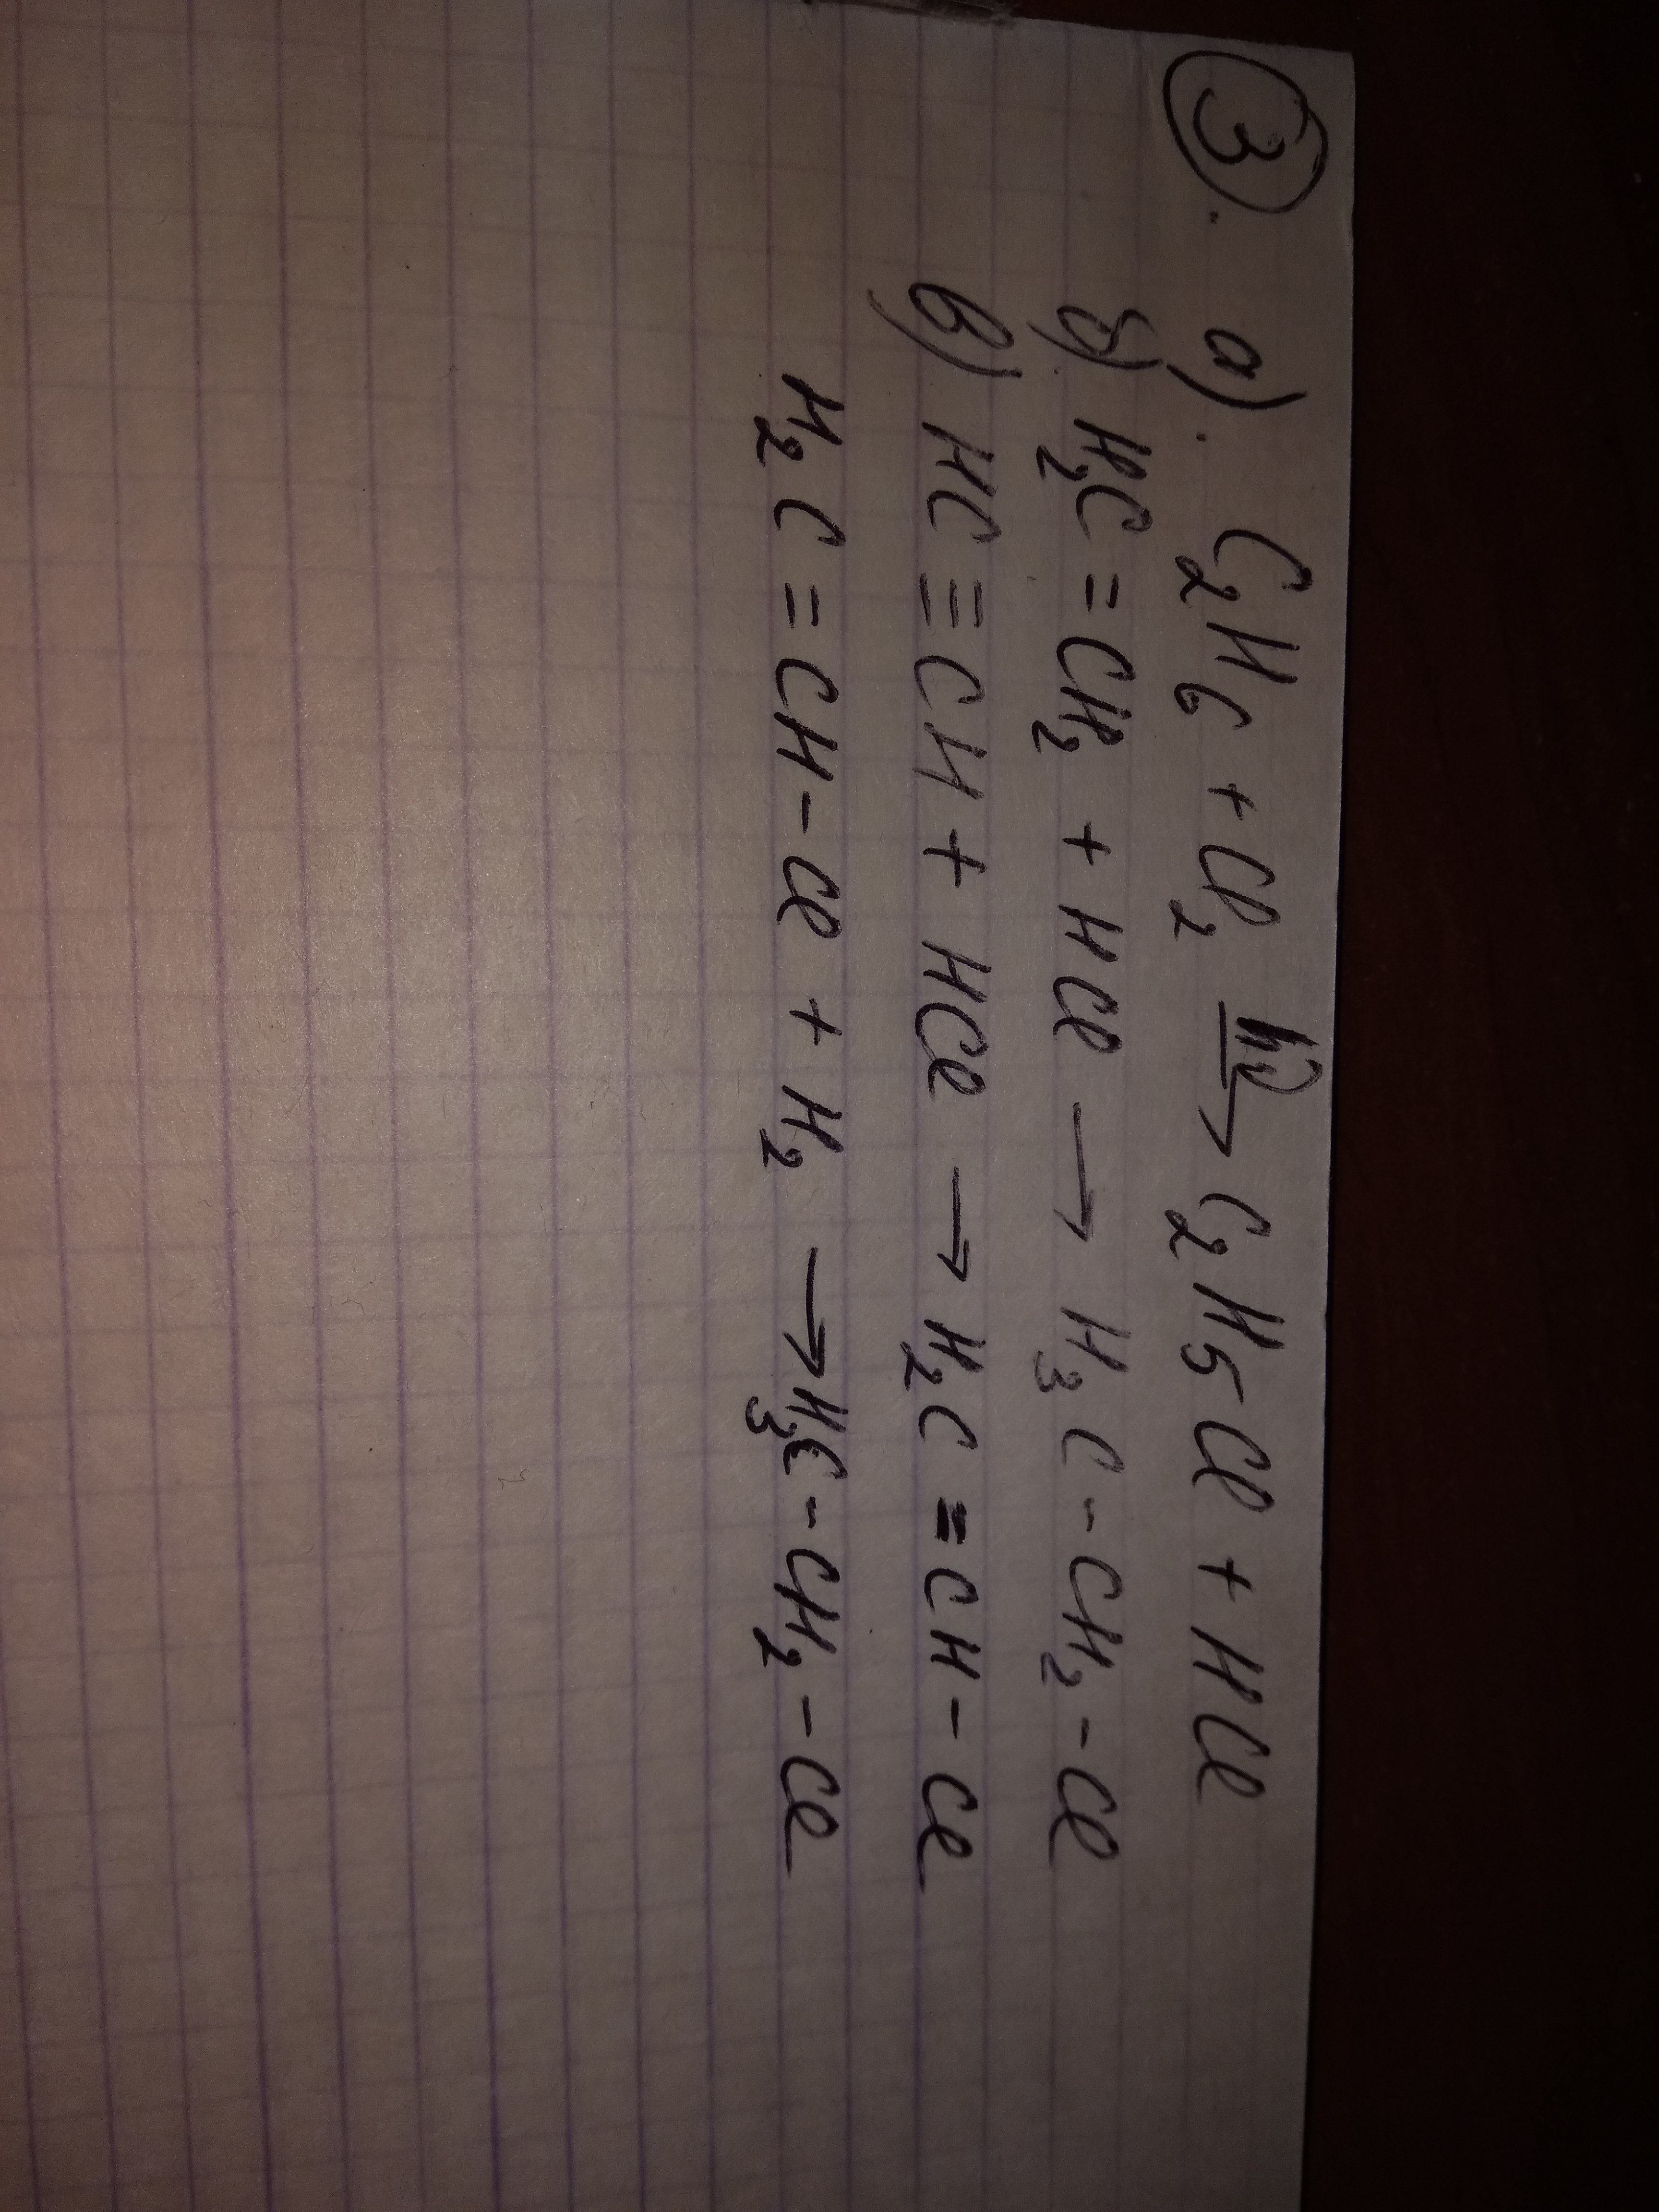 3. а). C₂H₆ + Cl₂ hν→ C₂H₅Cl + HCl
б) H₂C = CH₂ + HCl → H₃C - CH₂ - Cl
в) HC ≡ CH + HCl → H₂C = CH - Cl
H₂C = CH - Cl + H₂ → H₃C - CH₂ - Cl